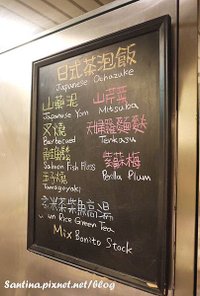 日式茶泡飯
Japanese Ochazuke
山藥泥 山芹菜
Japanese Yam Mitsuba
叉燒
Barbecued Tenkasu
Salmon Fish Floss 紫蘇梅
玉子燒 Perilla Plum
Tamagoyaki
玄米茶柴魚高湯
Rice Green Tea
Mix Bonito Stock
Santina.pixnet.net/blog